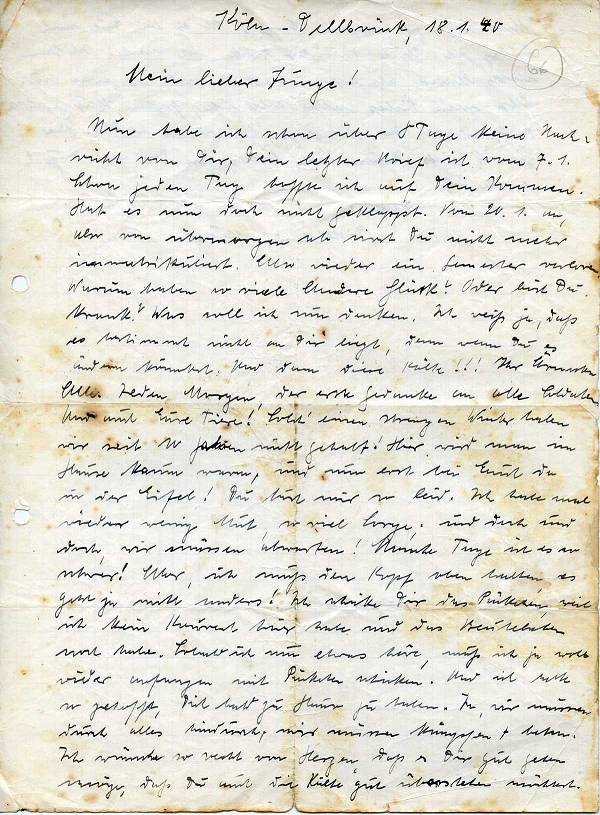 Köln-Dellbrück, 18.1.40
66
Mein lieber Junge!
Nun habe ich schon über 8 Tage keine Nach-
richt von Dir, Dein letzter Brief ist vom 7.1.
Schon jeden Tag hoffte ich auf Dein Kommen.
Hat es nun doch nicht geklappt. Vom 20.1. an,
also von übermorgen ab wirst Du nicht mehr
immatrikuliert. Also wieder ein Semester verloren
Warum haben so viele Andere Glück? Oder bist Du
krank? Was soll ich nun denken. Ich weiß ja, daß
es bestimmt nicht an Dir liegt, denn wenn Du es
ändern könntest. Und dann diese Kälte!!! Ihr Ärmsten
Alle. Jeden Morgen der erste Gedanke an alle Soldaten
Und auch Eure Tiere! Solch' einen strengen Winter haben
wir seit 10 Jahren nicht gehabt! Hier wird man im
Hause kaum warm, und nun erst bei Euch da
in der Eifel! Du tust mir so leid. Ich habe mal
wieder wenig Mut, so viel Sorge, und doch und
doch, wir müssen abwarten! Manche Tage ist es so
schwer! Aber, ich muß den Kopf oben halten, es
geht ja nicht anders! Ich schicke Dir das Päckchen, weil
ich kein Kuvert hier habe und das
noch habe. Sobald ich nun etwas höre, muß ich ja wohl
wieder anfangen mit Päckchen schicken. Und ich hatte
so gehofft, Dich bald zu Hause zu haben. Ja, wir müssen
durch alles hindurch, wir müssen kämpfen + beten.
Ich wünsche so recht von Herzen, daß es Dir gut gehen
möge, daß Du auch die Kälte gut überstehen möchtest.